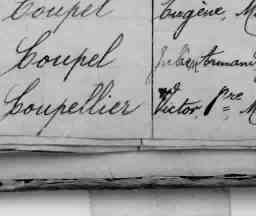 Coupet Eugène, M
Coupel Julien Armand
Coupellier Victor Pre M